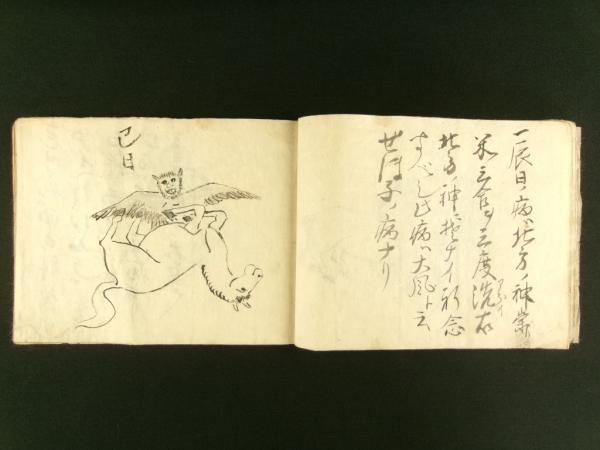 一辰日ノ病ハ北方ノ神祟
米三合ヲ三度洗
北方ノ神ニ 祈念
すべし此病ハ大風ト云
せほ子ノ病ナリ
巳日